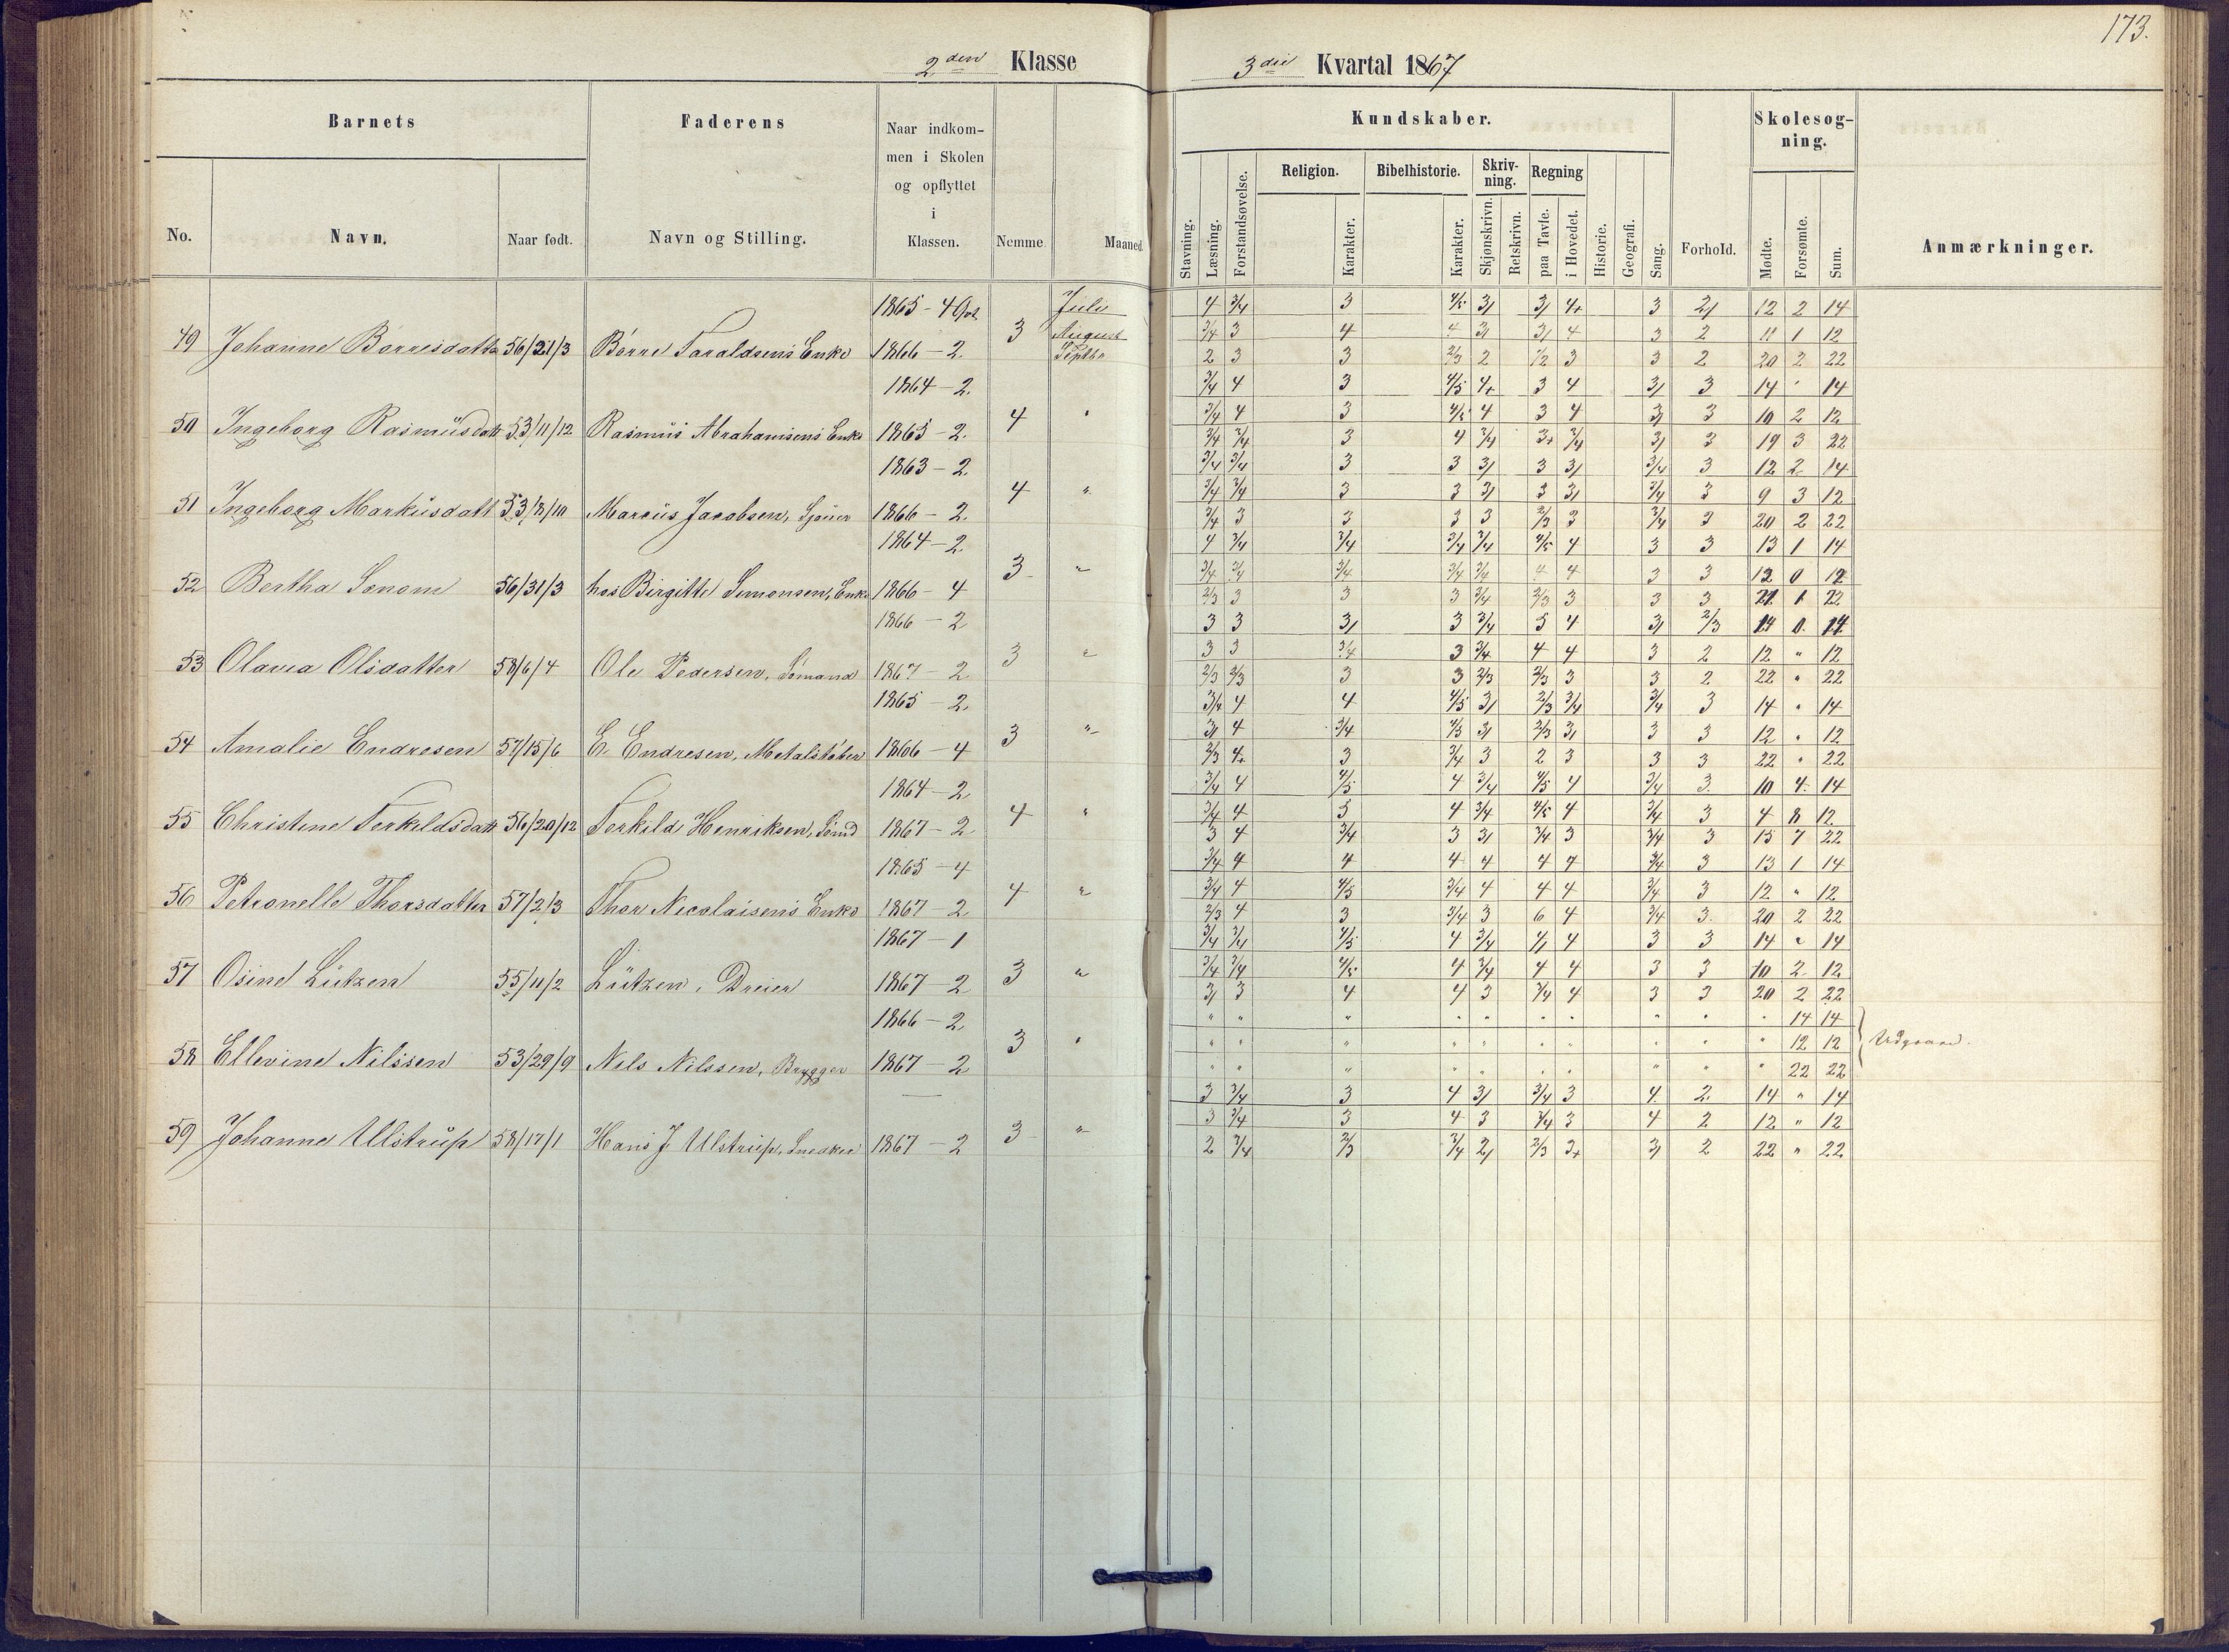 173.
2den Klasse
3die Kvartal 1867
Barnets
Faderens
Naar indkom-
men i Skolen
og opflyttet
i
Klassen.
No.
Navn.
Naar født.
Navn og Stilling.
Nemme
Maaned
Kundskaber.
Skolesog-
ning.
Religion.
Bibelhistorie.
Skriv-
ning.
Regning
Stavning.
Læsning.
Forstandsøvelse.
Karakter.
Karakter.
Skjønskrivn.
Retskrivn.
paa Tavle.
i Hovedet.
Historie.
Geografi.
Sang.
Forhold.
Mødte.
Forsømte.
Sum.
Anmærkninger.
1865 - 4 Juli 4 3/4 3 4/5 3/ 3/ 4+ 3 2/ 12 2 14
49 Johanne Børresdatte 56/21/3 Børre Taraldsens Enke 1866 - 2. 3 August 3/4 3 4 4 3/ 3/ 4 3 2 11 1 12
Septbr 2 3 3 2/3 2 1/2 3 3 2 20 2 22
1864 - 2. 3/4 4 3 4/5 4+ 3 4 3/ 3 14 " 14
50 Ingeborg Rasmusdatt 53/11/12 Rasmus Abrahamsens Enke 1865 - 2. 4 " 3/4 4 3 4/5 4 3 4 3/ 3 10 2 12
3/4 3/4 3 4 3/4 3+ 3/4 3/ 3 19 3 22
1863 - 2. 3/4 3/4 3 3 3/ 3 3/ 3/4 3 12 2 14
51 Ingeborg Markusdatt 53/8/10 Marcus Jacobsen, Sjouer 1866 - 2. 4 " 3/4 3/4 3 3 3/ 3 3/ 3/4 3 9 3 12
3/4 3 3 3 3 2/3 3 3/4 3 20 2 22
1864 - 2. 4 3/4 3/4 3/4 3/4 4/5 4 3 3 13 1 14
52 Bertha 56/31/3 hos Birgitte Simonsen, Enke 1866 - 4 3 " 3/4 3/4 3/4 3/4 3/4 4 4 3 3 12 0 12
2/3 3 3 3 3/4 2/3 3 3 3 21 1 22
1866 - 2 3 3 3/ 3 3/4 5 4 3/ 2/3 14 0 14
53 Olava Olsdatter 58/6/4 Ole Pedersen, Sømand 1867 - 2 3 " 3 3 3/4 3 3/4 4 4 3 2 12 " 12
2/3 2/3 3 3 2/3 2/3 3 3 2 22 " 22
1865 - 2. 3/4 4 4 4/5 3/ 2/3 3/4 3/4 3 14 " 14
54 Amalie Endresen 57/15/6 E. Endresen, Metalstøber 1866 - 4 3 " 3/ 4 3/4 4/5 3/ 2/3 3/ 3 3 12 " 12
2/3 4+ 3 3/4 3 2 3 3 3 22 " 22
1864 - 2 3/4 4 4/5 4 3/4 4/5 4 3/4 3. 10 4 14
55 Christine Terkildsdatt 56/20/12 Terkild Henriksen, Sømd 1867 - 2 4 " 3/4 4 5 4 3/4 4/5 4 3/4 3 4 8 12
3 4 3/4 3 3/ 3/4 3 3/4 3 15 7 22
1865 - 4 3/4 4 4 4 4 4 4 3/4 3 13 1 14
56 Petronelle Thorsdatter 57/2/3 Thor Nicolaisens Enke 1867 - 2 4 " 3/4 4 4/5 3/4 4 4 4 3/4 3 12 " 12
2/3 4 3 3/4 3 6 4 3/4 3. 20 2 22
1867 - 1 3/4 3/4 4/5 4 3/4 4/ 4 3 3 14 " 14
57 Osine Lützen 55/11/2 Lützen, Dreier 1867 - 2 3 " 3/4 3/4 4/5 4 3/4 4 4 3 3 10 2 12
3/ 3 4 4 3 3/4 4 3 3 20 2 22
1866 - 2. " " " " " " " " " " 14 14
58 Ellevine Nilssen 53/29/9 Nils Nilssen, Brygger 1867 - 2 3 " " " " " " " " " " " 12 12 Udgaaet.
" " " " " " " " " " 22 22
3 3/4 3 4 3/ 3/4 3 4 2. 14 " 14
59 Johanne Ulstrup 58/17/1 Hans J Ulstrup, Snedker 1867 - 2 3 " 3 3/4 3 4 3 3/4 3 4 2 12 " 12
2 3/4 2/3 3/4 2/ 2/3 3+ 3/ 2 22 " 22